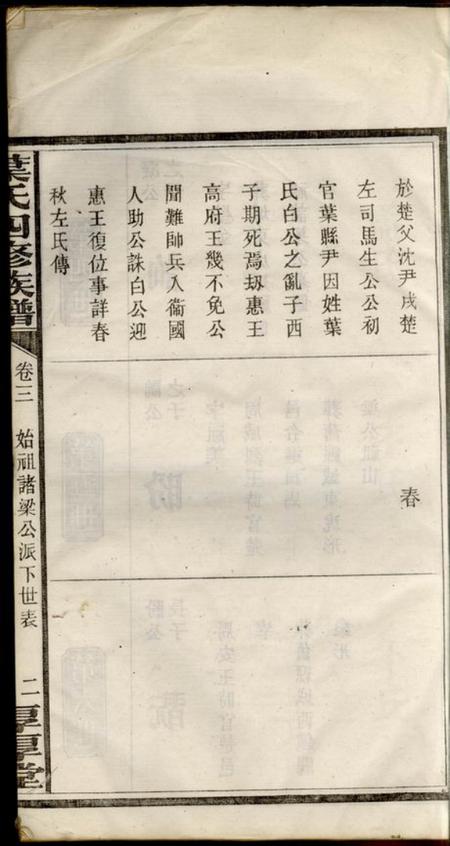 於楚父沈尹戌楚
左司馬生公公初
官葉縣尹因姓葉
氏白公之亂子西
子期死焉刼惠王
高府王幾不免公
聞難帥兵入衞國
人助公誅白公迎
惠王復位事詳春
秋左氏傳
春
葉氏四修族譜
卷三
始祖諸梁公派下世表
二
厚堂